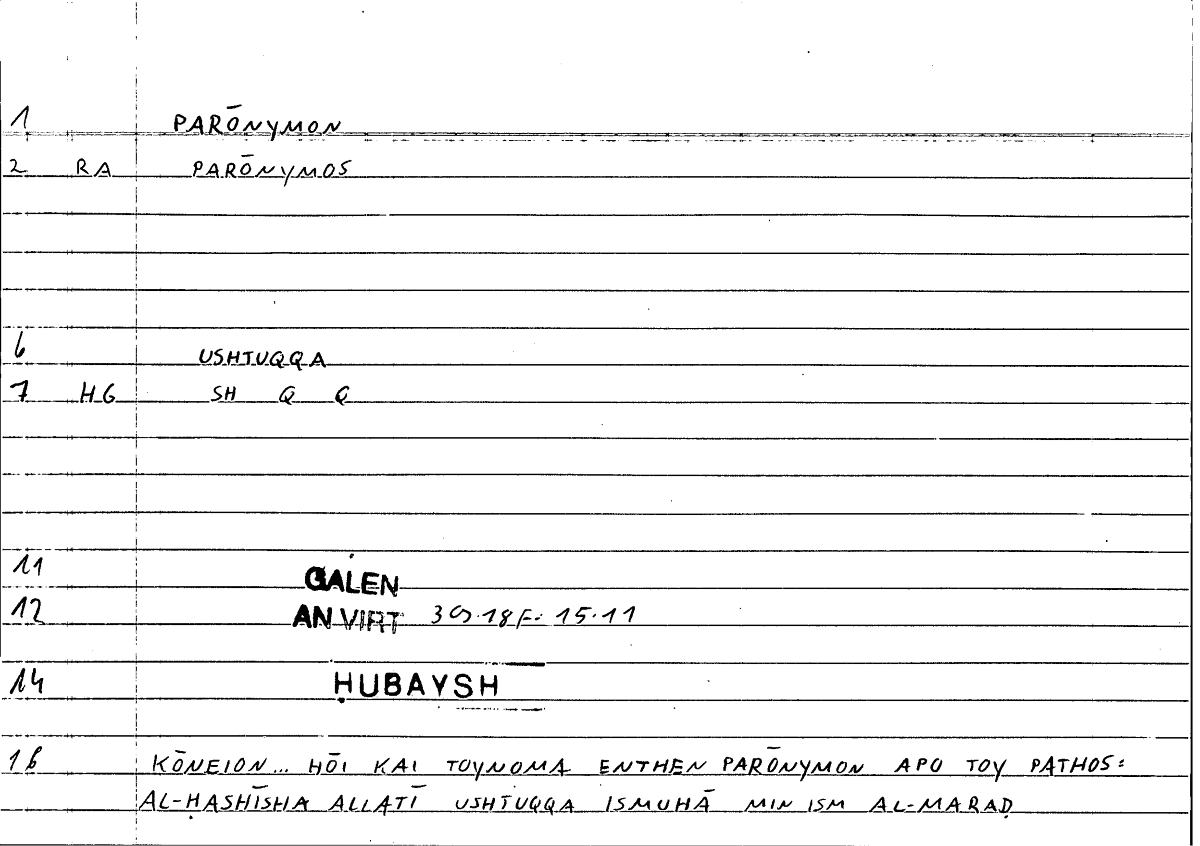 1 PARŌNYMON
2 RA PARŌNYMOS
6 USHTUQQA
7 HG SH Q Q
11 GALEN
12 AN VIRT 39.18 F: 15.11
14 ḤUBAYSH
16 KŌNEION... HŌI KAI TOYNOMA ENTHEN PARŌNYMON APO TOY PATHOS:
AL-ḤASHĪSHA ALLATĪ USHTUQQA ISMUHĀ MIN ISM AL-MARAḌ